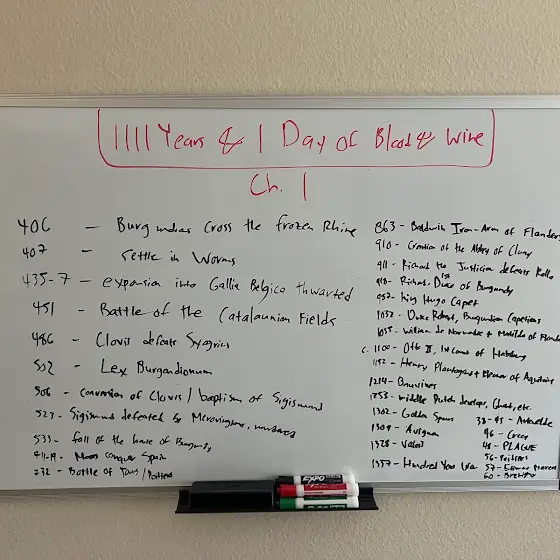 1111 Years & 1 Day of Blood & Wine
Ch. 1
406 – Burgundians Cross the frozen Rhine
407 – settle in Worms
435-7 – expansion into Gallia Belgica thwarted
451 – Battle of the Catalaunian Fields
486 – Clovis defeats Syagrius
502 – Lex Burgundionum
506 – conversion of Clovis / baptism of Sigismund
523 – Sigismund defeated by Merovingians,
533 – fall of the house of Burgundy
711-19 – Moors conquer Spain
732 – Battle of Tours/Poitiers
863 – Baldwin Iron-Arm of Flanders
910 – Creation of the Abbey of Cluny
911 – Richard the Justiciar defeats Rollo
918 – Richard, 1st Duke of Burgundy
987 – King Hugo Capet
1032 – Duke Robert, Burgundian Capetians
1053 – William de Normandie + Matilda of Flanders
c. 1100 – Otto II, 1st count of Habsburg
1152 – Henry Plantagenet + Eleanor of Aquitaine
1214 – Bouvines
1253 – middle Dutch develops, Charters, etc.
1302 – Golden Spurs
1309 – Avignon
1328 – Valois
1337 – Hundred Years War
38-45 – Artevelde
46 – Crecy
48 – PLAGUE
56 – Poitiers
57 – Etienne Marcel
60 – Bretigny
EXPO